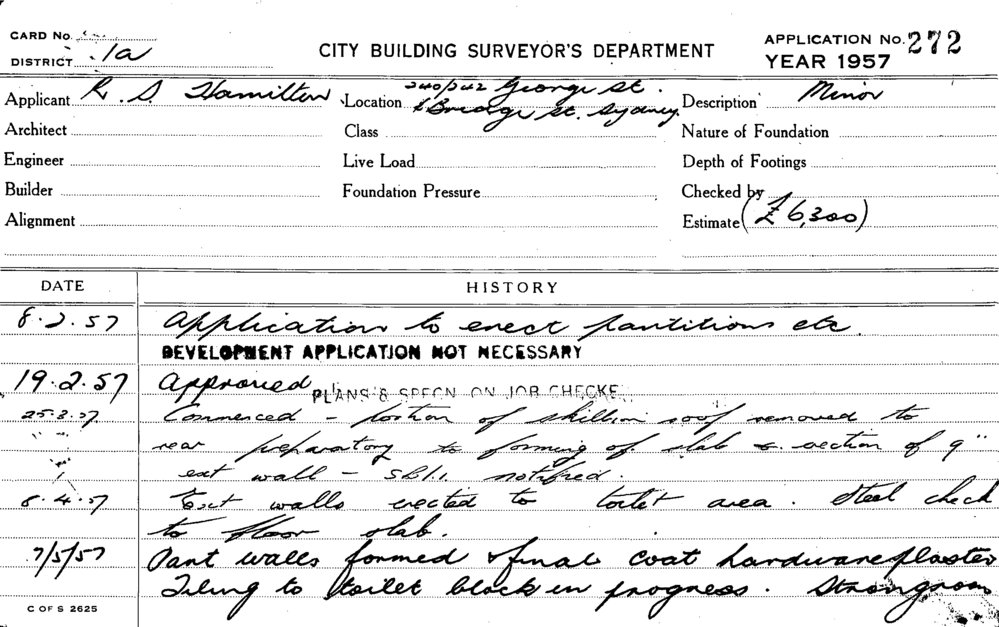 CARD No.
DISTRICT 1a
CITY BUILDING SURVEYOR'S DEPARTMENT
APPLICATION No. 272
YEAR 1957
Applicant R. S. Hamilton
Location 240/242 George St.
& Bridge St. Sydney.
Description Minor
Architect
Class
Nature of Foundation
Engineer
Live Load
Depth of Footings
Builder
Foundation Pressure
Checked by
Alignment
Estimate (£6,300)
DATE HISTORY
8.2.57 Application to erect partitions etc
DEVELOPMENT APPLICATION NOT NECESSARY
19.2.57 Approved PLANS & SPECN ON JOB CHECKE
25.3.57 Commenced - portion of skillion roof removed to
rear preparatory to forming of slab & erection of 9"
ext wall - notified.
8.4.57 Ext walls erected to toilet area. Steel check
to floor slab.
7/5/57 Part walls formed & final coat hardware plaster
Tiling to toilet block in progress. Strongroom
C OF S 2625